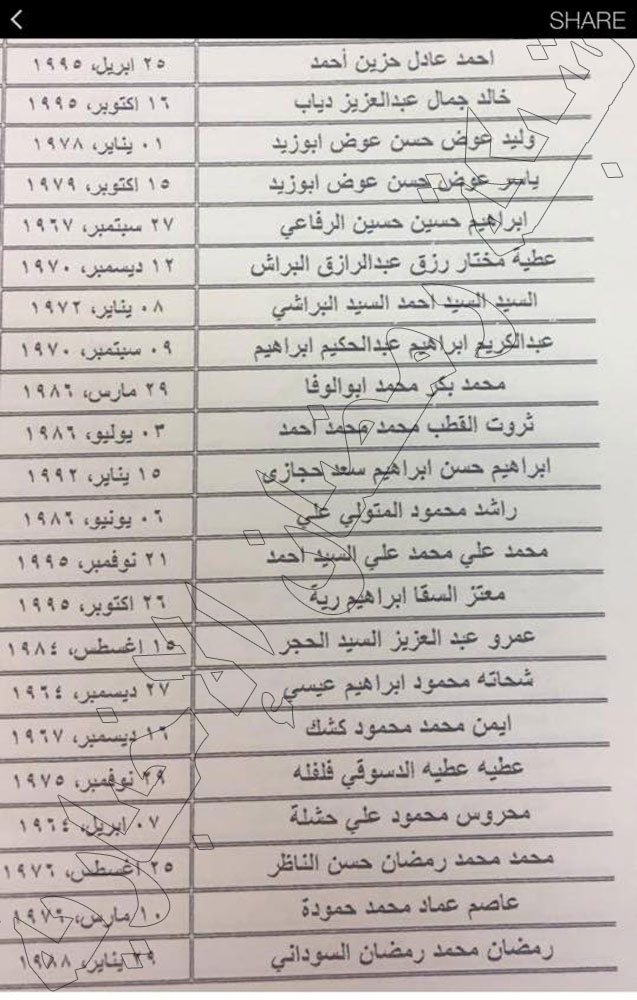 SHARE
احمد عادل حزين أحمد ٢٥ ابريل، ١٩٩٥
خالد جمال عبدالعزيز دياب ١٦ اكتوبر، ١٩٩٥
وليد عوض حسن عوض ابوزيد ٠١ يناير، ١٩٧٨
ياسر عوض حسن عوض ابوزيد ١٥ اكتوبر، ١٩٧٩
ابراهيم حسين حسين الرفاعي ٢٧ سبتمبر، ١٩٦٧
عطية مختار رزق عبدالرازق البراش ١٢ ديسمبر، ١٩٧٠
السيد السيد احمد السيد البراشي ٠٨ يناير، ١٩٧٢
عبدالكريم ابراهيم عبدالحكيم ابراهيم ٠٩ سبتمبر، ١٩٧٠
محمد بكر محمد ابوالوفا ٢٩ مارس، ١٩٨٦
ثروت القطب محمد محمد احمد ٠٣ يوليو، ١٩٨٦
ابراهيم حسن ابراهيم سعد حجازى ١٥ يناير، ١٩٩٢
راشد محمود المتولي علي ٠٦ يونيو، ١٩٨٦
محمد علي محمد علي السيد احمد ٢١ نوفمبر، ١٩٩٥
معتز السقا ابراهيم رية ٢٦ اكتوبر، ١٩٩٥
عمرو عبد العزيز السيد الحجر ١٥ اغسطس، ١٩٨٤
شحاته محمود ابراهيم عيسي ٢٧ ديسمبر، ١٩٦٤
ايمن محمد محمود كشك ١٦ ديسمبر، ١٩٦٧
عطيه عطيه الدسوقي فلفله ٢٩ نوفمبر، ١٩٧٥
محروس محمود علي حشلة ٠٧ ابريل، ١٩٦٤
محمد محمد رمضان حسن الناظر ٢٥ اغسطس، ١٩٧٦
عاصم عماد محمد حمودة ١٠ مارس، ١٩٧٦
رمضان محمد رمضان السوداني ٢٩ يناير، ١٩٨٨